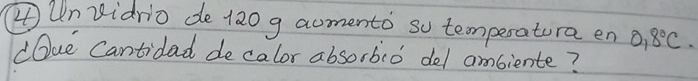 ④ Un vidrio de 120 g aumentó su temperatura en 0,8°C.
¿Qué Cantidad de calor absorbió del ambiente?